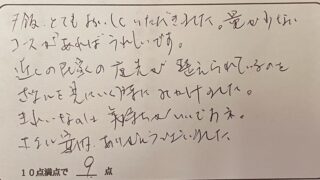 夕飯、とてもおいしくいただきました。量が少ない
コースがあればうれしいです。
近くの民家の庭先が整えられているのを
さんぽを見にいく時にみかけました。
きれいなのは気持ちがいいですね。
ありがとうございました。
10点満点で 9 点